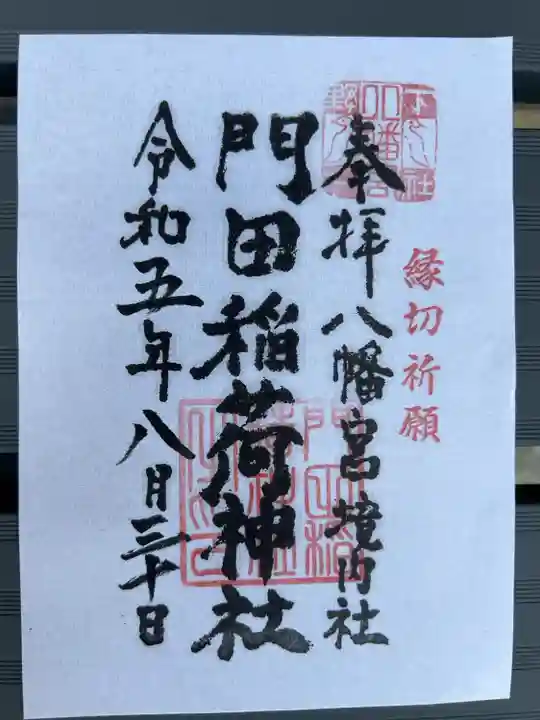 縁切祈願
奉拝八幡宮境内社
門田稲荷神社
令和五年八月三十日